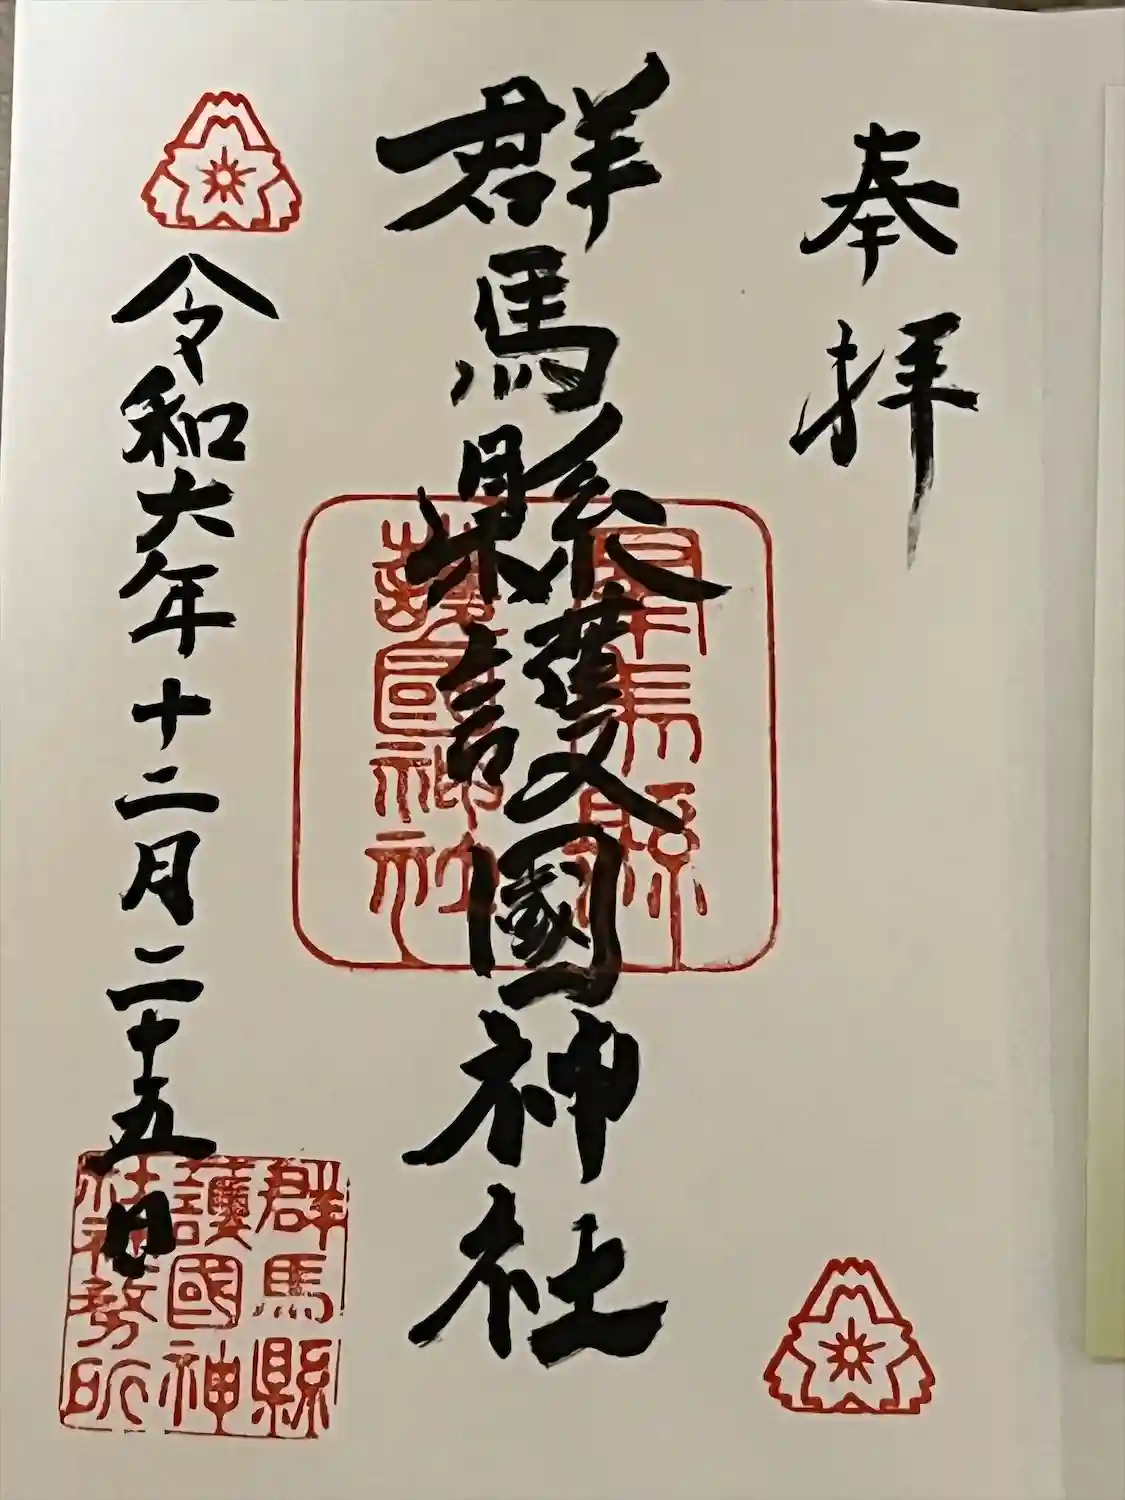 奉拝
群馬縣護國神社
群馬縣
護國神社
令和六年十二月二十五日
群馬縣
護國神
社務所